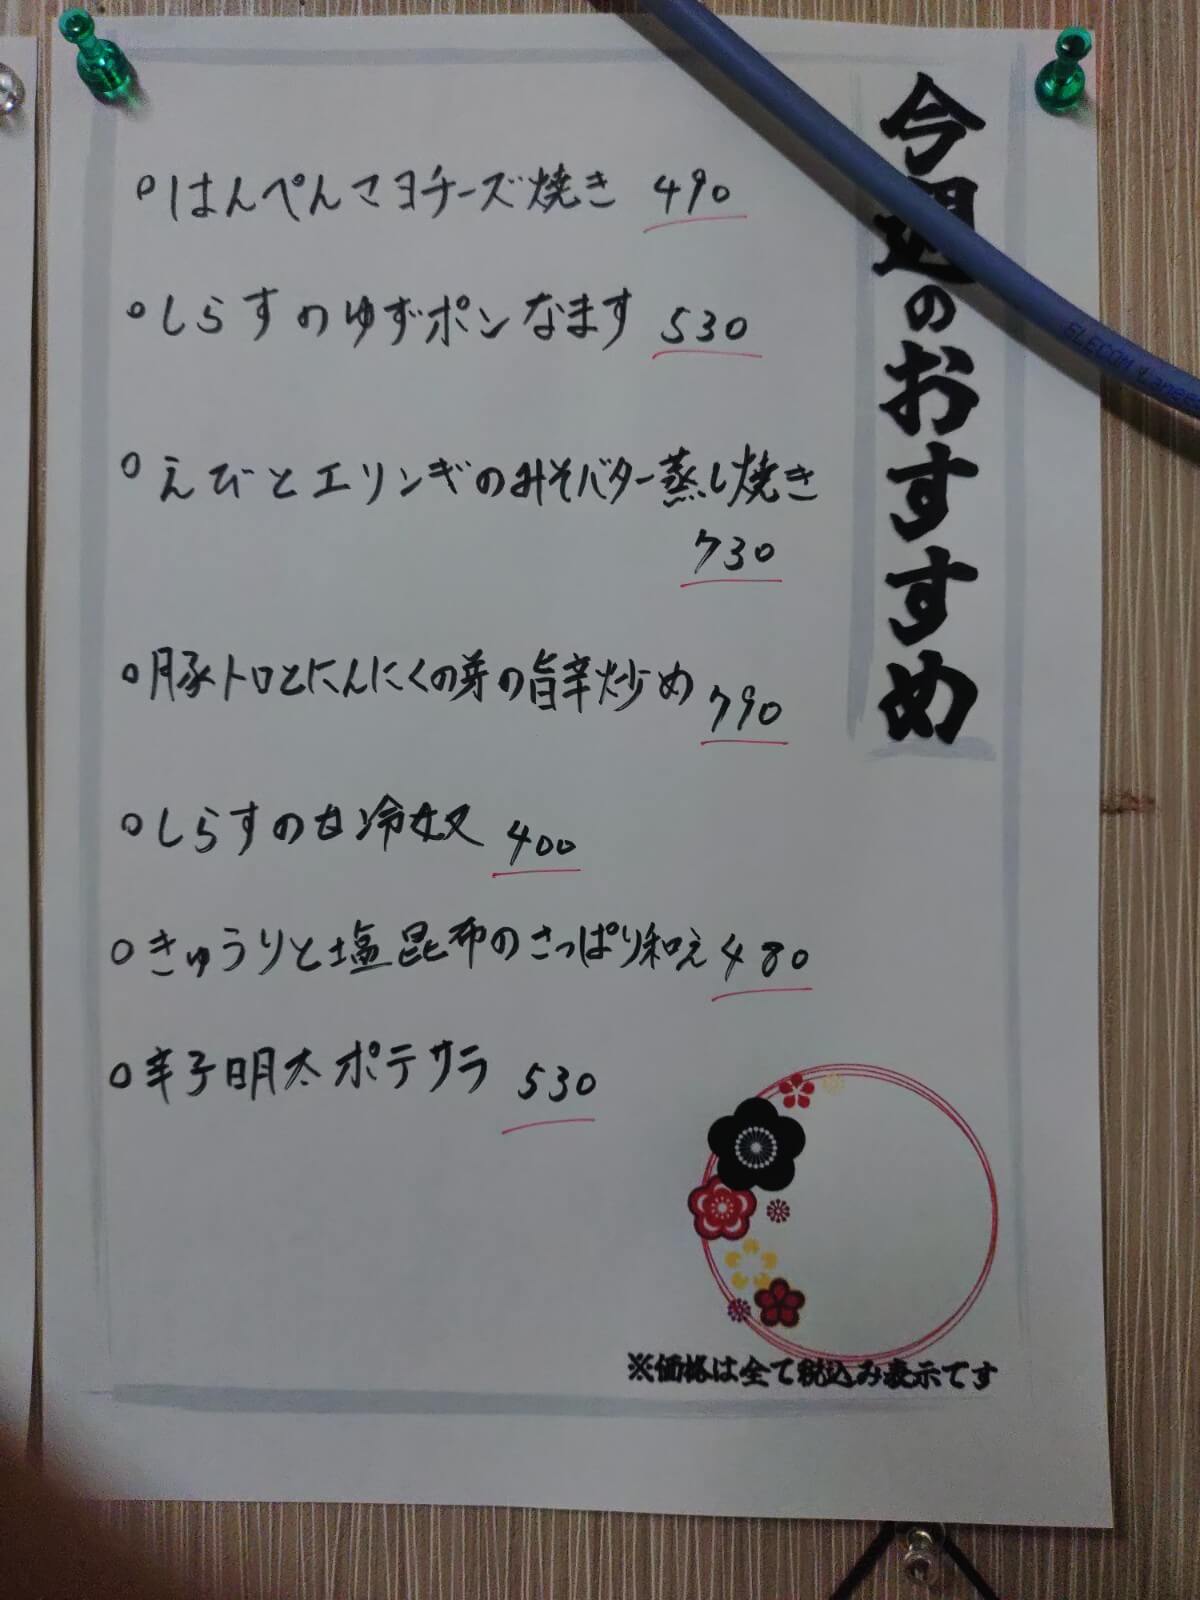 今週のおすすめ
○はんぺんマヨチーズ焼き 490
○しらすのゆずポンなます 530
○えびとエリンギのみそバター蒸し焼き
730
○豚トロとにんにくの芽の旨辛炒め 790
○しらすの甘冷奴 400
○きゅうりと塩昆布のさっぱり和え 480
○辛子明太ポテサラ 530
※価格は全て税込み表示です
ELECOM